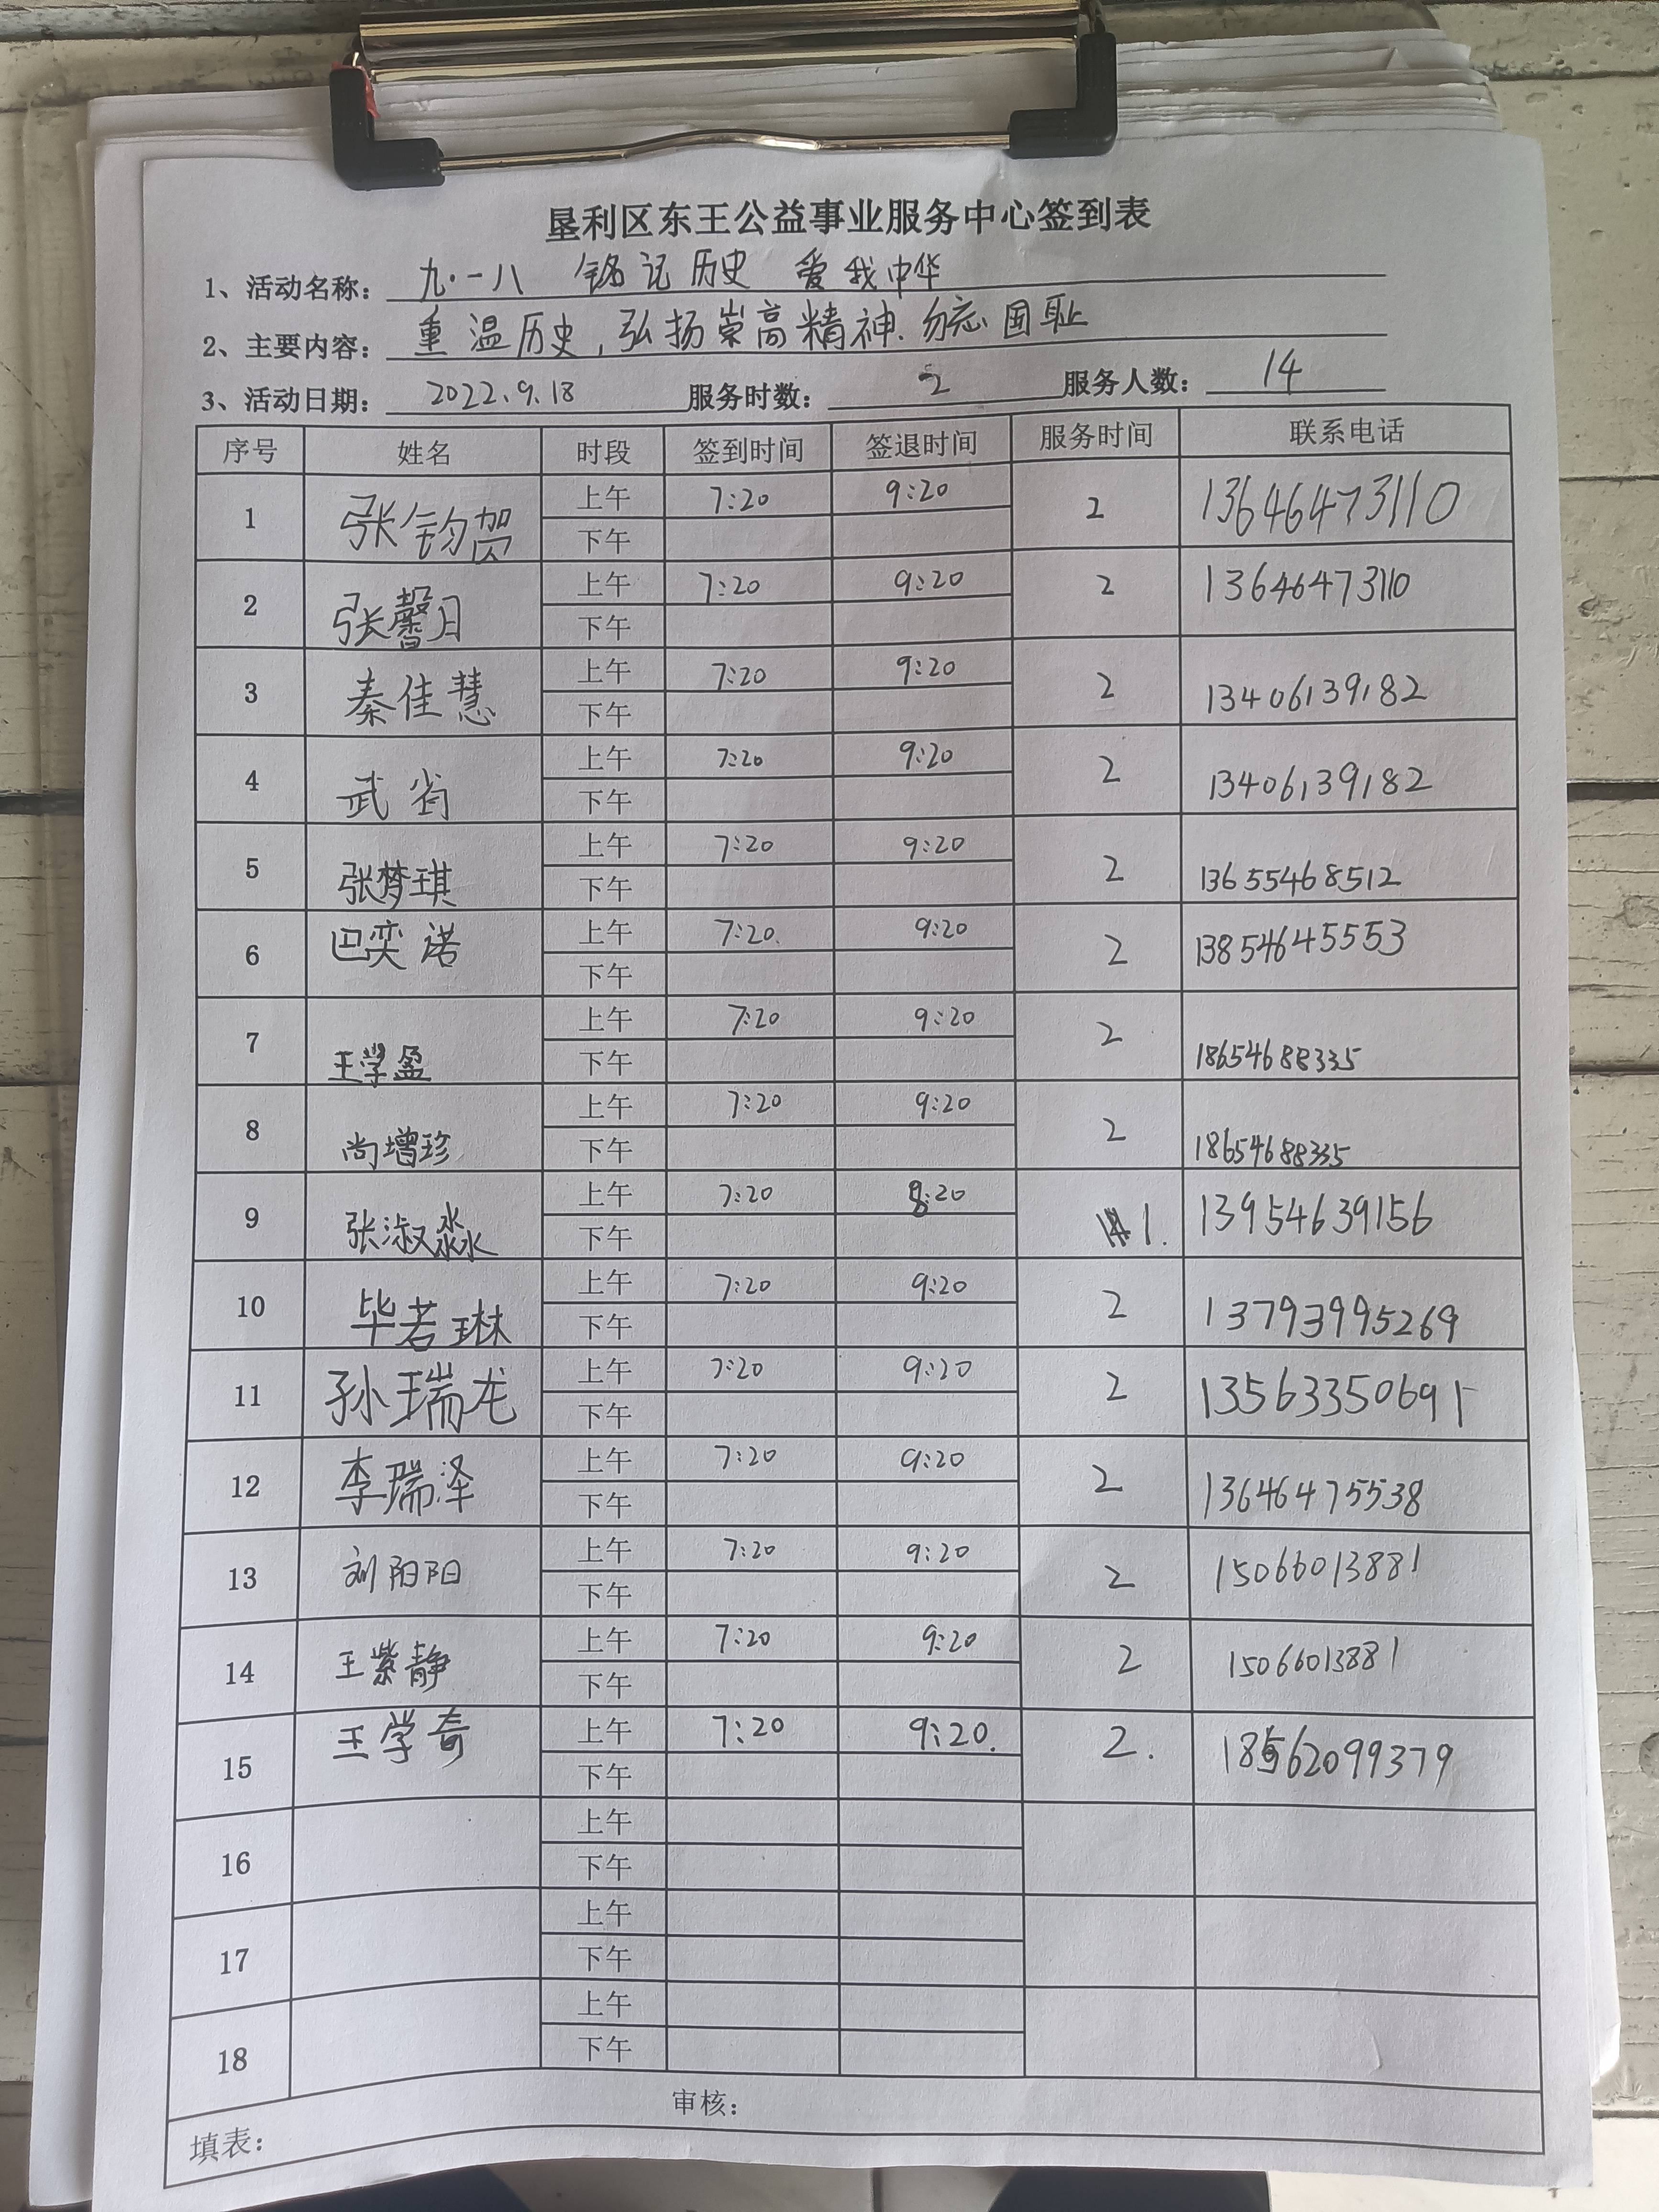 垦利区东王公益事业服务中心签到表
1、活动名称： 九·一八 铭记历史 爱我中华
2、主要内容： 重温历史，弘扬崇高精神.勿忘国耻
3、活动日期： 2022.9.18 服务时数： 2 服务人数： 14
序号 姓名 时段 签到时间 签退时间 服务时间 联系电话
1 张钧贺 上午 7:20 9:20 2 13646473110
下午
2 张馨月 上午 7:20 9:20 2 13646473110
下午
3 秦佳慧 上午 7:20 9:20 2 13406139182
下午
4 武 上午 7:20 9:20 2 13406139182
下午
5 张梦琪 上午 7:20 9:20 2 13655468512
下午
6 巴奕诺 上午 7:20 9:20 2 13854645553
下午
7 王学盈 上午 7:20 9:20 2 18654688335
下午
8 尚增珍 上午 7:20 9:20 2 18654688335
下午
9 张淑淼 上午 7:20 8:20 1. 13954639156
下午
10 毕若琳 上午 7:20 9:20 2 13793995269
下午
11 孙瑞龙 上午 7:20 9:20 2 13563350691
下午
12 李瑞泽 上午 7:20 9:20 2 13646475538
下午
13 刘阳阳 上午 7:20 9:20 2 15066013881
下午
14 王紫静 上午 7:20 9:20 2 15066013881
下午
15 王学奇 上午 7:20 9:20. 2. 18562099379
下午
16 上午
下午
17 上午
下午
18 上午
下午
填表： 审核：